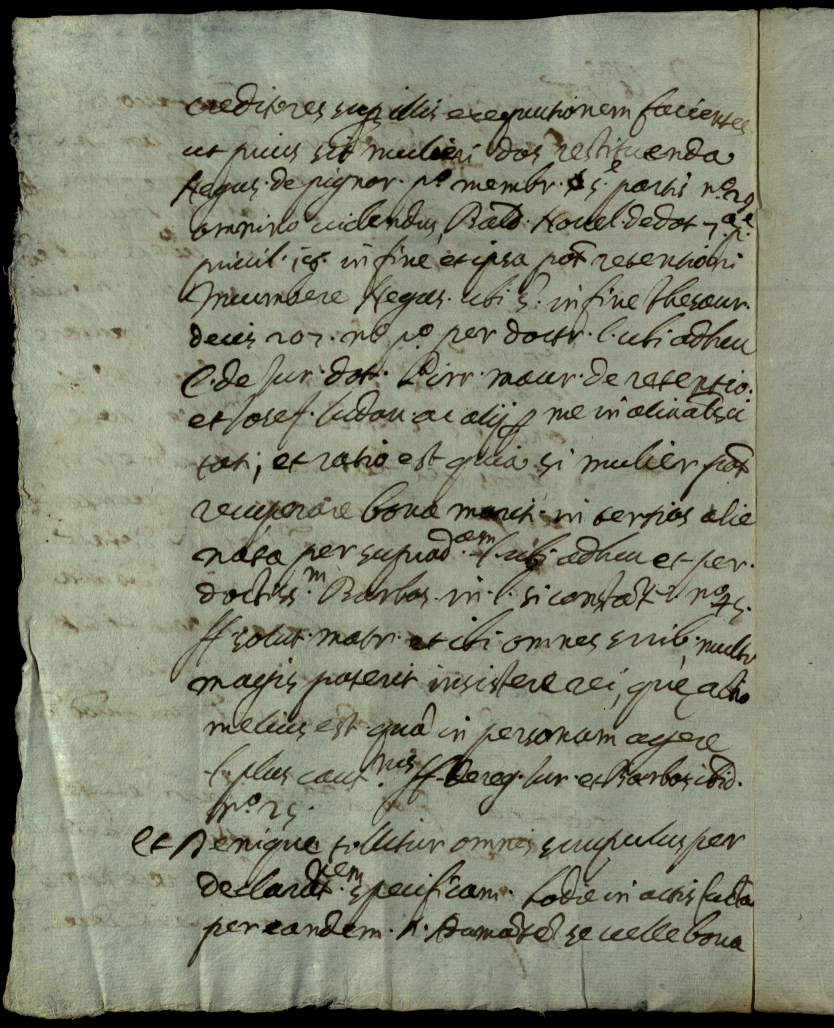 creditores sup. illis exequutionem facientes
ut prius sit mulieri dos restituenda
Negus. de pignor. p.º membr. 5.e partis n.º 29
omnino uidendus, Bald. Nouel. de dot. 7.ae p.
priuil. in fine et ipsa pot retentioni
Incumbere Negus. ubi s. in fine thesaur.
decis 207. nº pº per doctr. l. ubi adhuc
C. de Iur. dot. maur. de retentio.
et Iosef. ludou. ac alij me
tati, et ratio est quia si mulier pot
recuperare bona mariti in tertios alie
nata per l. ubi adhuc et per.
doctiss.m Barbos. in l. si constat nº
ff solut. matr. et ibi omnes scrib. multo
magis poterit insistere rei, què actio
melius est quā in personam agere
l. plus caut.nis ff de reg. Iur. et Barbos ibid.
nº 25.
et Denique tollitur omnis scrupulus per
declarat.nem specificam. hodie in actis facta
per eandem. se uelle bona